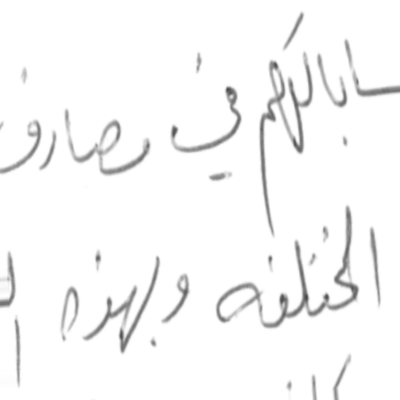 ساباتكم في مصارف
المختلفه وبهذه ال